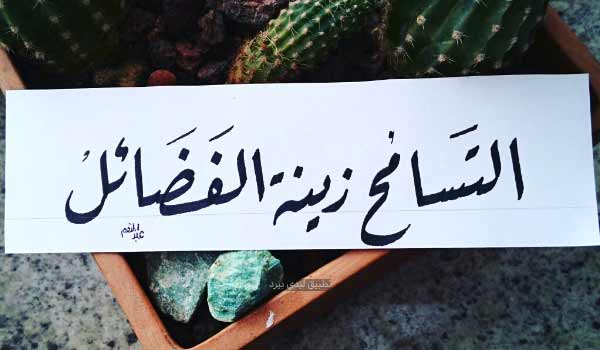 التسامح زينة الفَضَائلْ
عبد المنعم
تطبيق ليدي بيرد